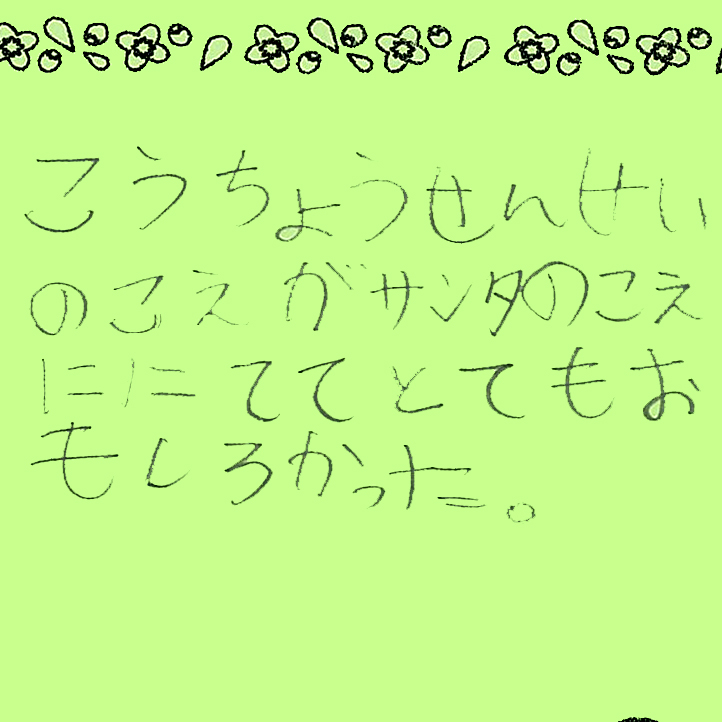 こうちょうせんせい
のこえがサンタのこえ
ににててとてもお
もしろかった。